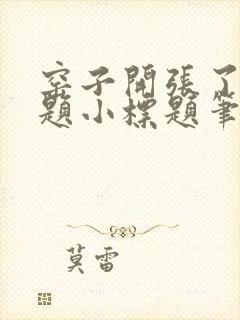 窑子開張了
題小標題筆
莫雷